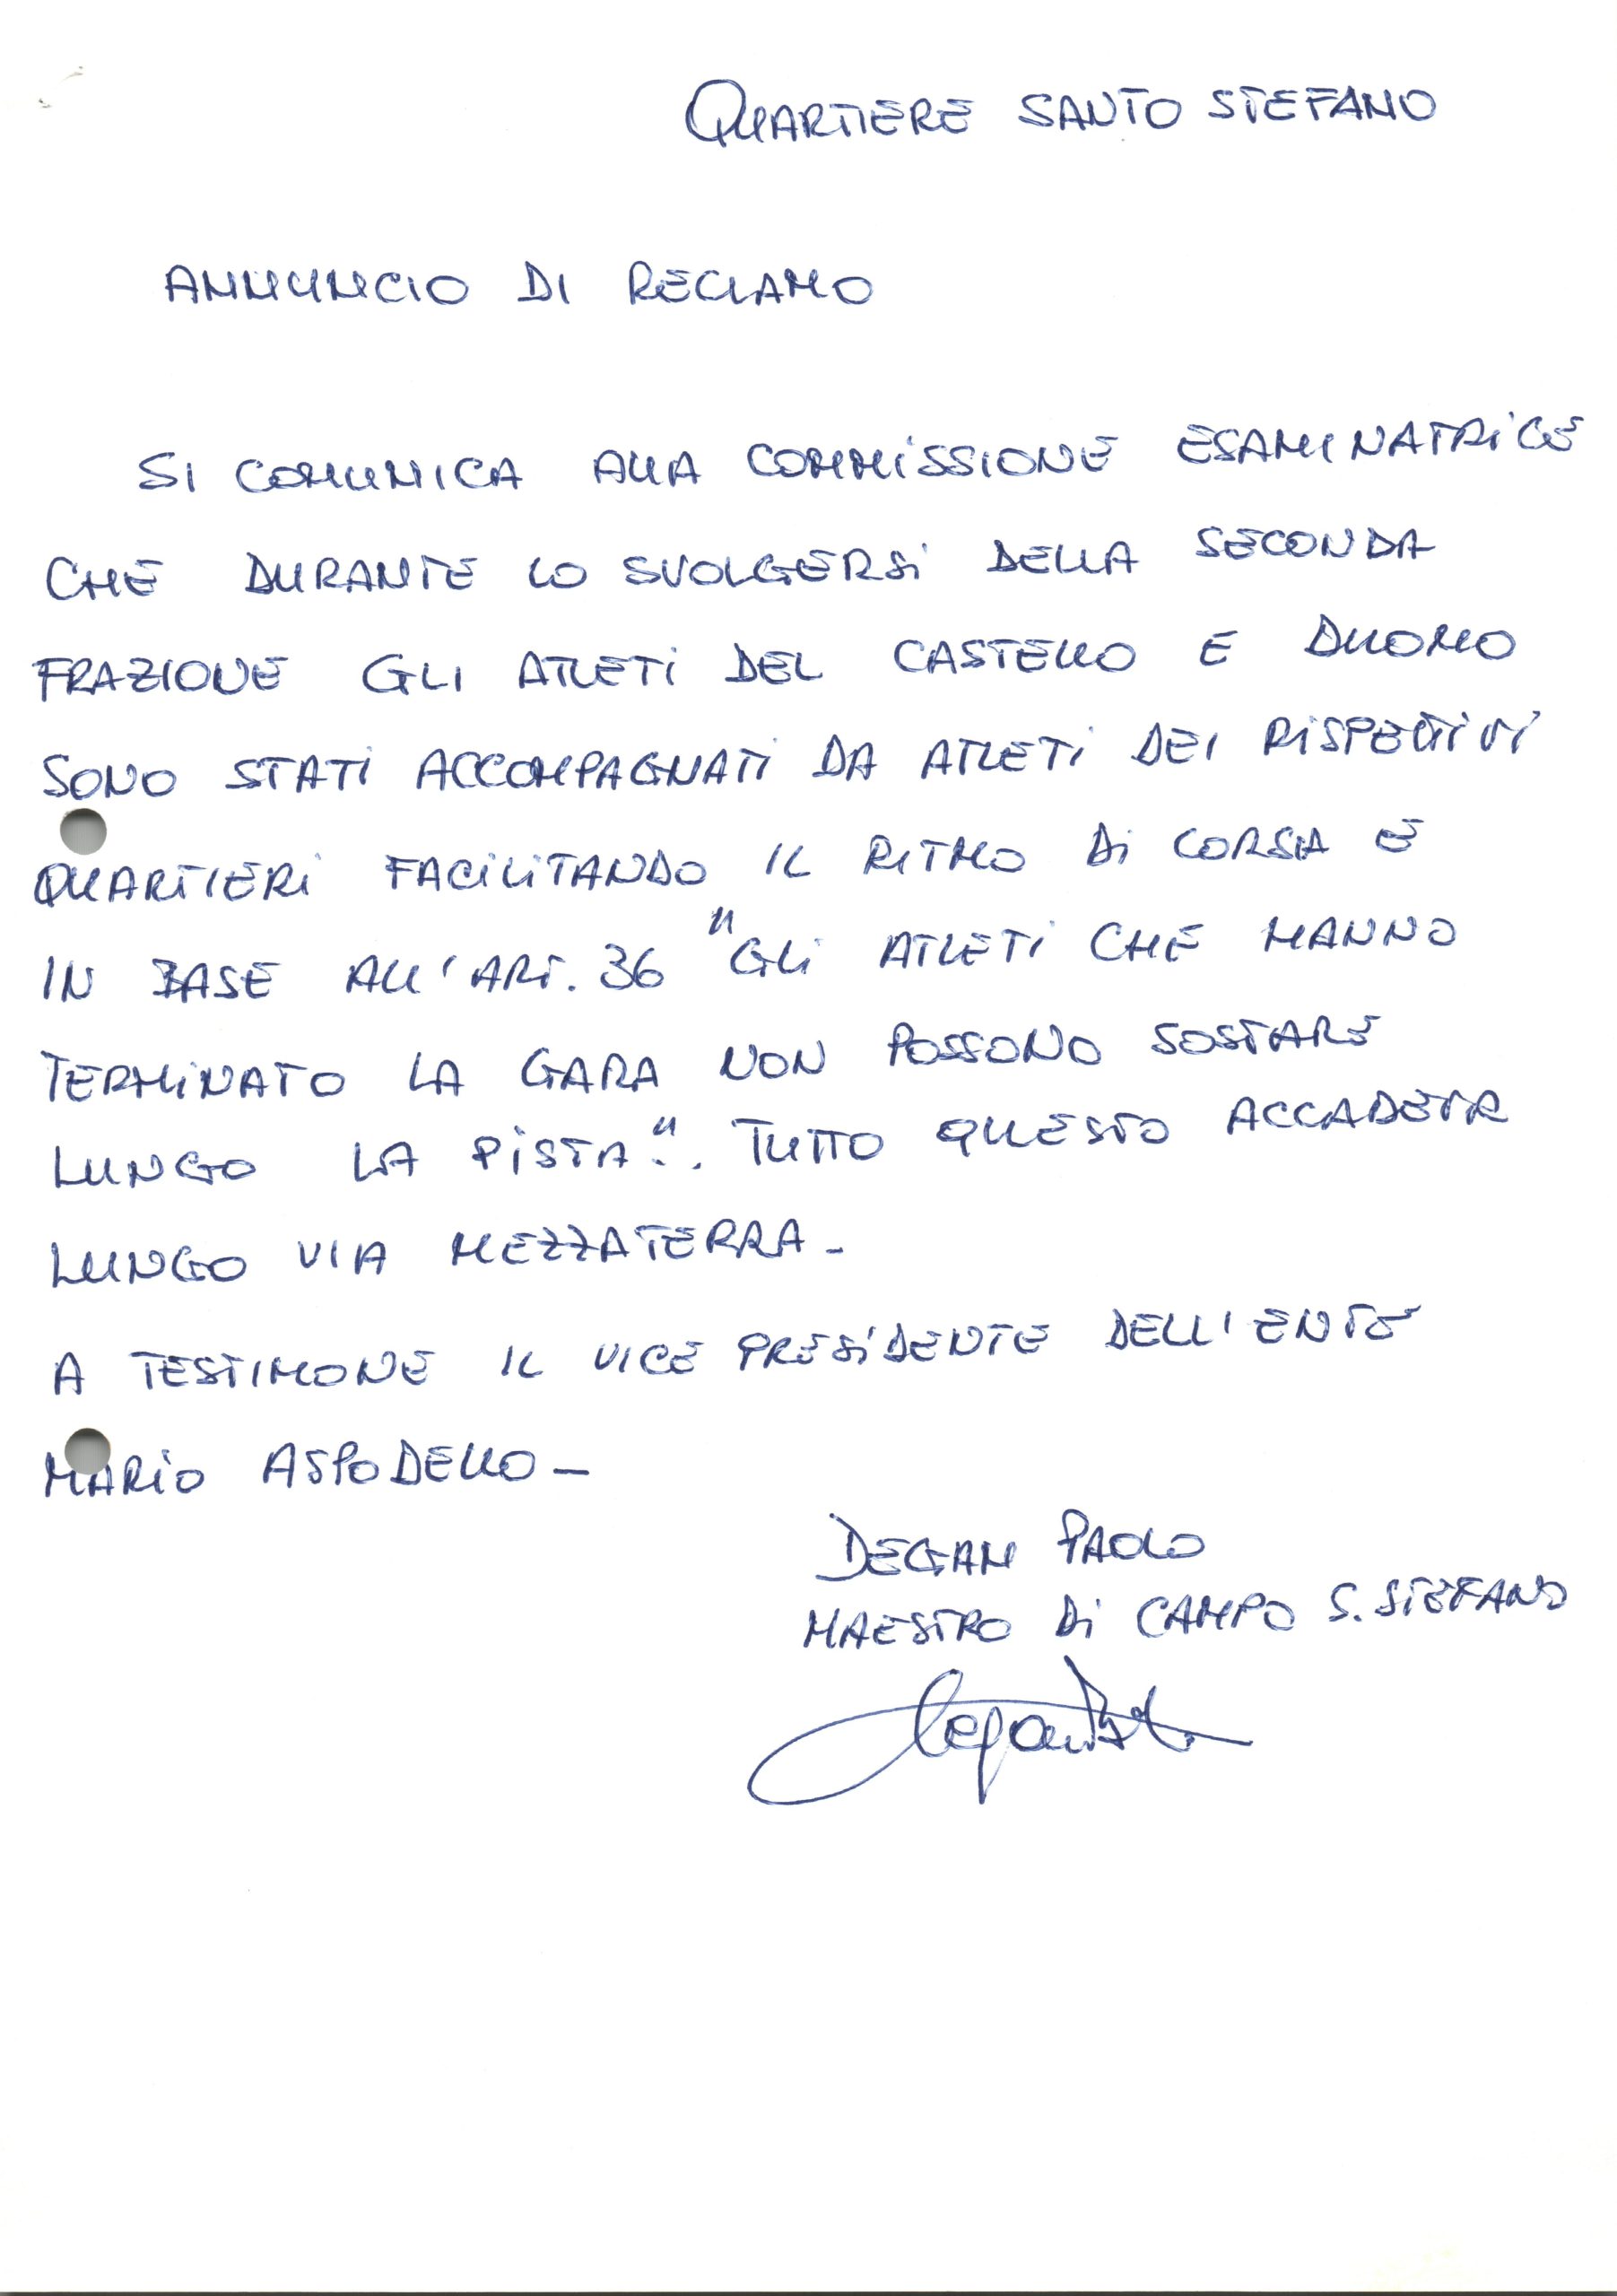 QUARTIERE SANTO STEFANO
ANNUNCIO DI RECLAMO
SI COMUNICA ALLA COMMISSIONE ESAMINATRICE
CHE DURANTE LO SVOLGERSI DELLA SECONDA
FRAZIONE GLI ATLETI DEL CASTELLO E DUOMO
SONO STATI ACCOMPAGNATI DA ATLETI DEI RISPETTIVI
QUARTIERI FACILITANDO IL RITMO DI CORSA E
IN BASE ALL'ART. 36 "GLI ATLETI CHE HANNO
TERMINATO LA GARA NON POSSONO SOSTARE
LUNGO LA PISTA.". TUTTO QUESTO ACCADEVA
LUNGO VIA MEZZATERRA-
A TESTIMONE IL VICE PRESIDENTE DELL'ENTE
MARIO ASPODELLO-
DEGAN PAOLO
MAESTRO DI CAMPO S. STEFANO